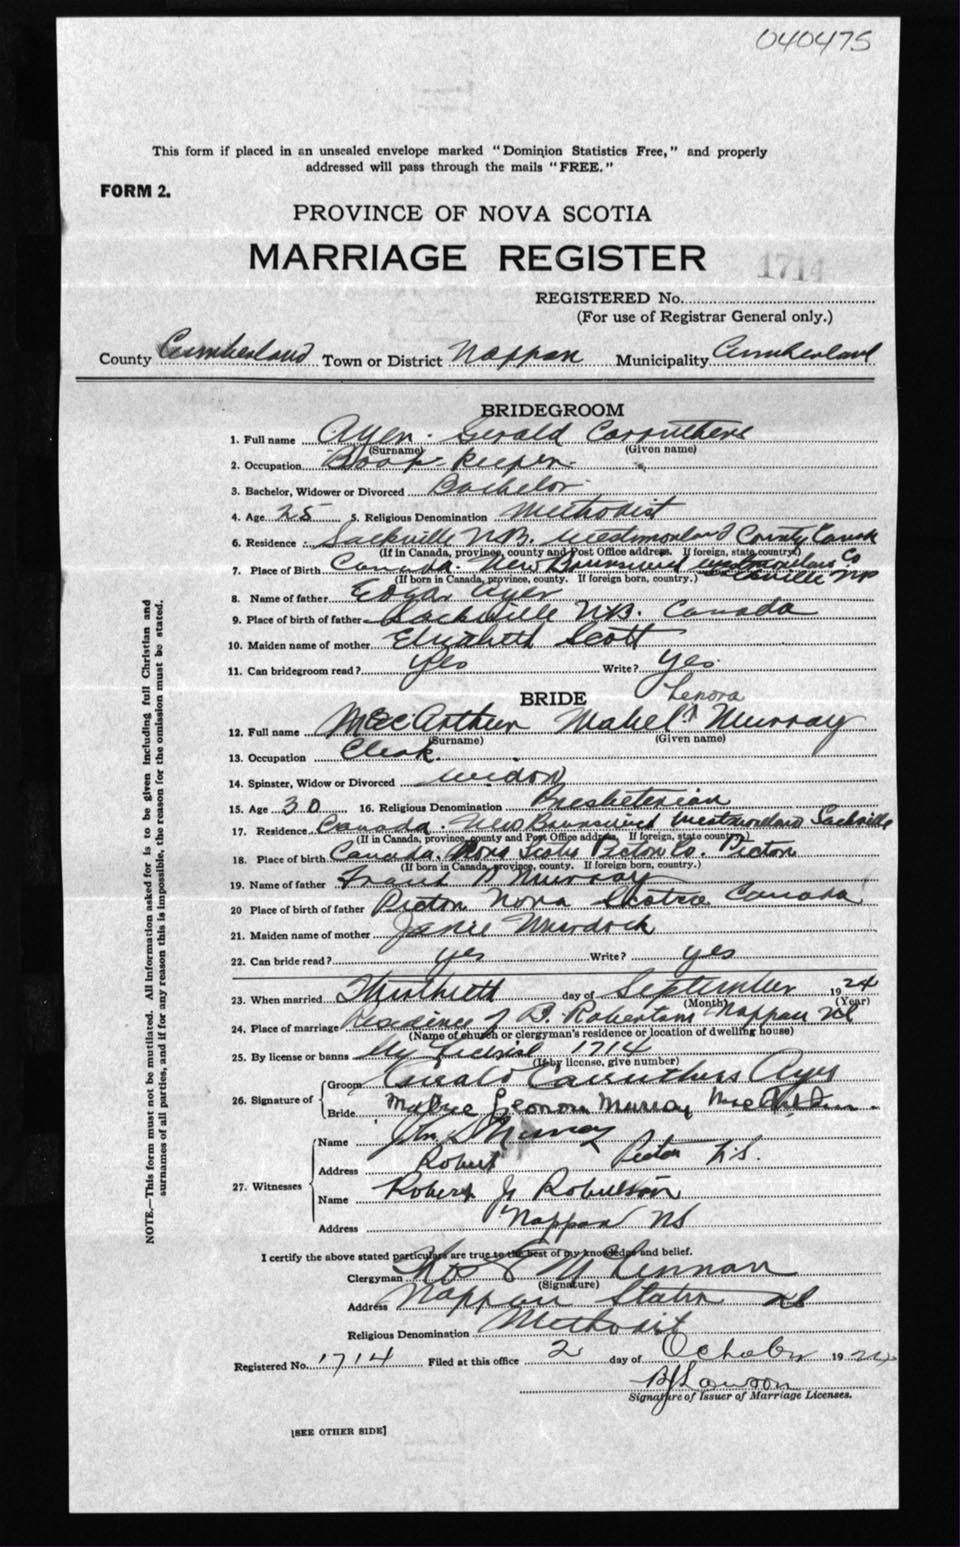 040475
This form if placed in an unsealed envelope marked "Dominion Statistics Free," and properly
addressed will pass through the mails "FREE."
FORM 2.
PROVINCE OF NOVA SCOTIA
MARRIAGE REGISTER 1714
REGISTERED No.
(For use of Registrar General only.)
County Cumberland Town or District Nappan Municipality Cumberland
BRIDEGROOM
1. Full name Ayer Gerald Carruthers
(Surname) (Given name)
2. Occupation Book-keeper
3. Bachelor, Widower or Divorced Bachelor
4. Age 25 5. Religious Denomination Methodist
6. Residence Sackville N.B. Westmorland County Canada
(If in Canada, province, county and Post Office address. If foreign, state country.)
7. Place of Birth Canada. New Brunswick Westmorland Co
Sackville NB
(If born in Canada, province, county. If foreign born, country.)
8. Name of father Edgar Ayer
9. Place of birth of father Sackville N.B. Canada
10. Maiden name of mother Elizabeth Scott
11. Can bridegroom read? Yes Write? Yes
BRIDE
Lenora
12. Full name MacArthur Mabel Murray
(Surname) (Given name)
13. Occupation Clerk.
14. Spinster, Widow or Divorced widow
15. Age 30 16. Religious Denomination Presbeterian
17. Residence Canada. New Brunswick Westmorland Sackville
(If in Canada, province, county and Post Office address. If foreign, state country.)
18. Place of birth Canada. Nova Scotia Picton Co. Picton
(If born in Canada, province, county. If foreign born, country.)
19. Name of father Murray
20 Place of birth of father Picton Nova Scotia Canada
21. Maiden name of mother Janie Murdock
22. Can bride read? yes Write? yes
23. When married Thirtieth day of September 1924
(Month) (Year)
24. Place of marriage Residence of Robertson Nappan NS
(Name of church or clergyman's residence or location of dwelling house)
25. By license or banns By License 1714
(If by license, give number)
26. Signature of
Groom Gerald Carruthers Ayer
Bride Leonora Murray MacArthur
27. Witnesses
Name Murray
Address Robert Picton N.S.
Name Robert Robertson
Address Nappan NS
I certify the above stated particulars are true to the best of my knowledge and belief.
Clergyman McLennan
(Signature)
Address Nappan Station NS
Religious Denomination Methodist
Registered No. 1714 Filed at this office 2 day of October 1924
Lawson
Signature of Issuer of Marriage Licenses.
[SEE OTHER SIDE]
NOTE.—This form must not be mutilated. All information asked for is to be given including full Christian and
surnames of all parties, and if for any reason this is impossible, the reason for the omission must be stated.